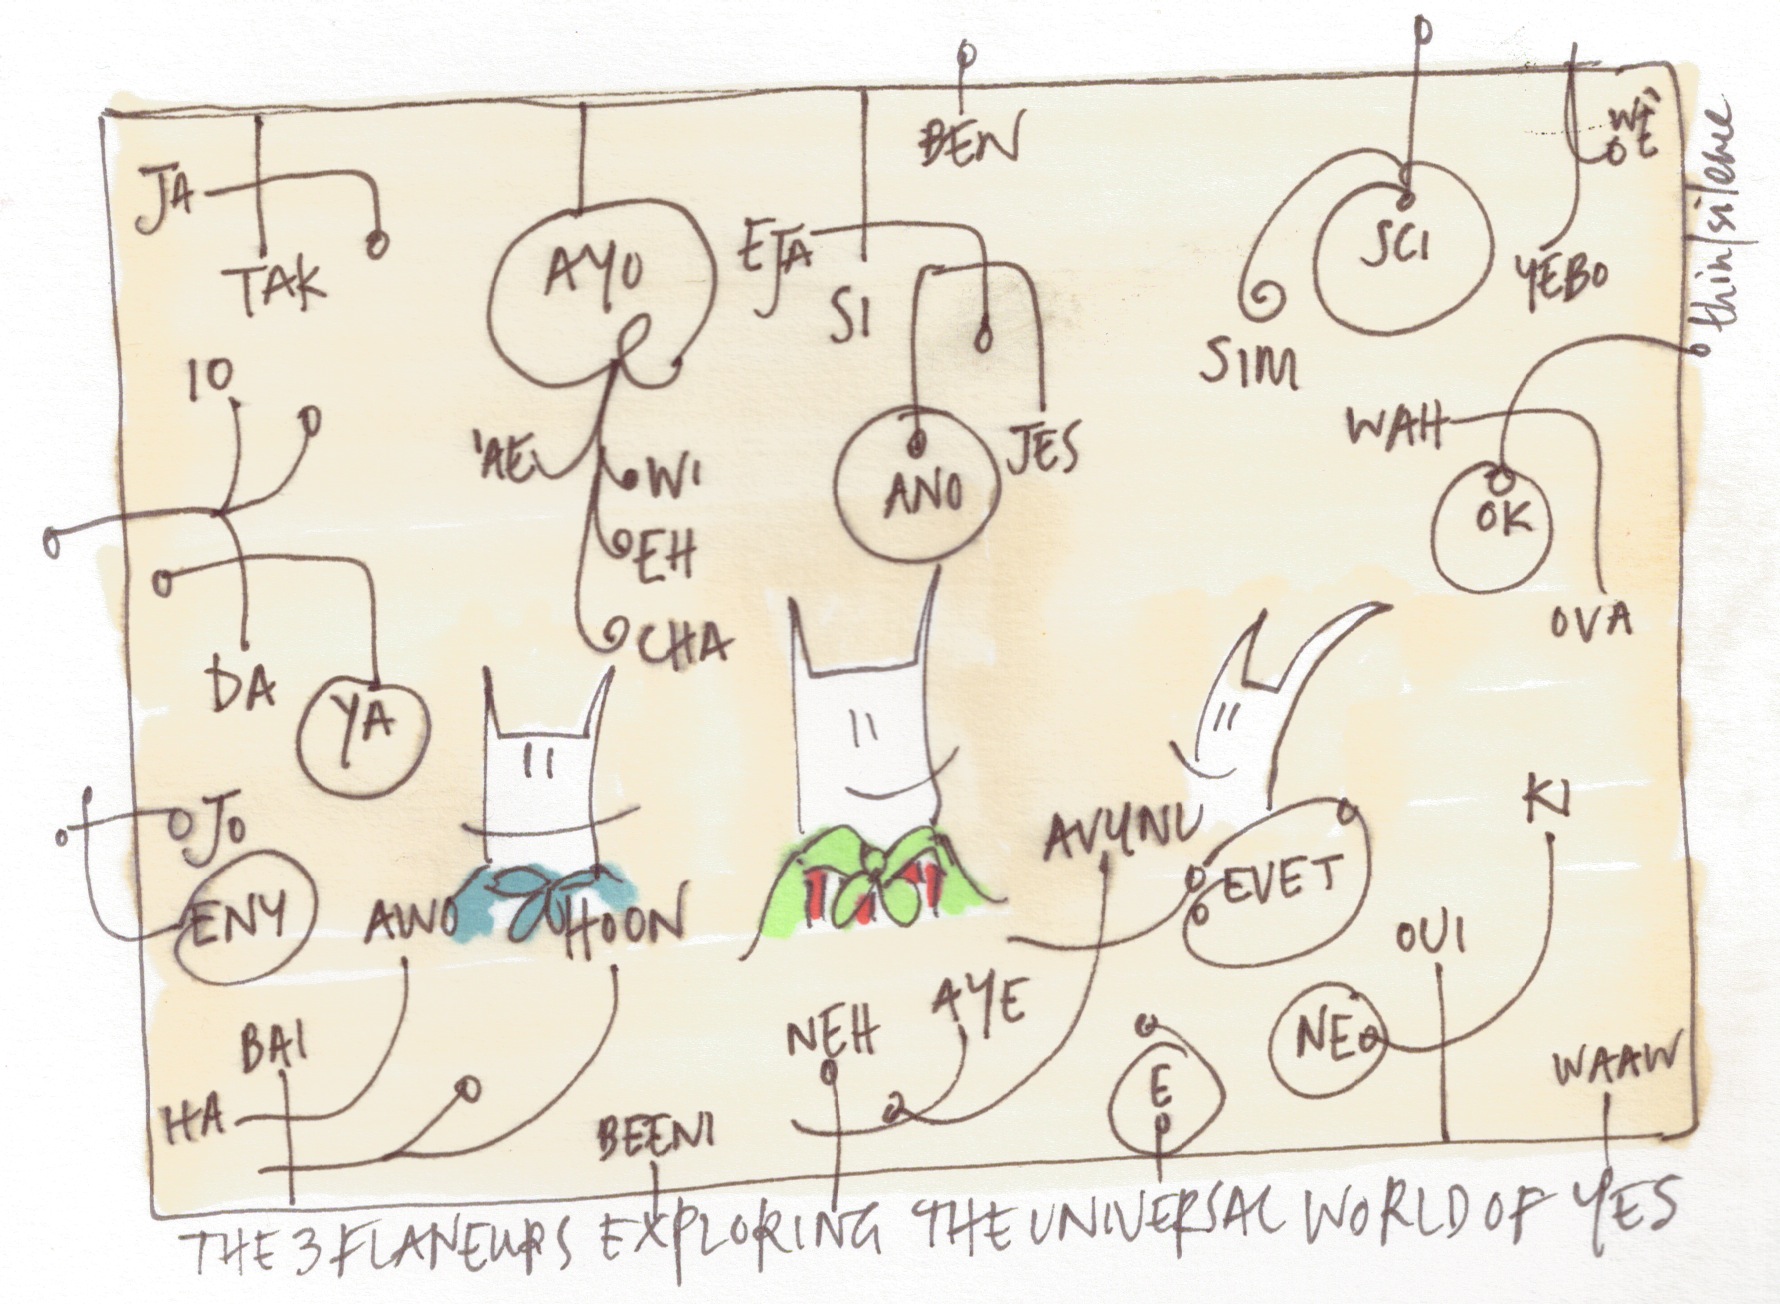 BEN
JA
TAK
AYO
EJA
SI
SCI
YEBO
thin/silence
SIM
IO
'AE
WI
EH
CHA
ANO
JES
WAH
OK
OVA
DA
YA
JO
ENY
AWO
HOON
AVUNU
EVET
KI
OUI
BAI
HA
BEENI
NEH
AYE
E
NE
WAAW
THE 3 FLANEURS EXPLORING THE UNIVERSAL WORLD OF YES